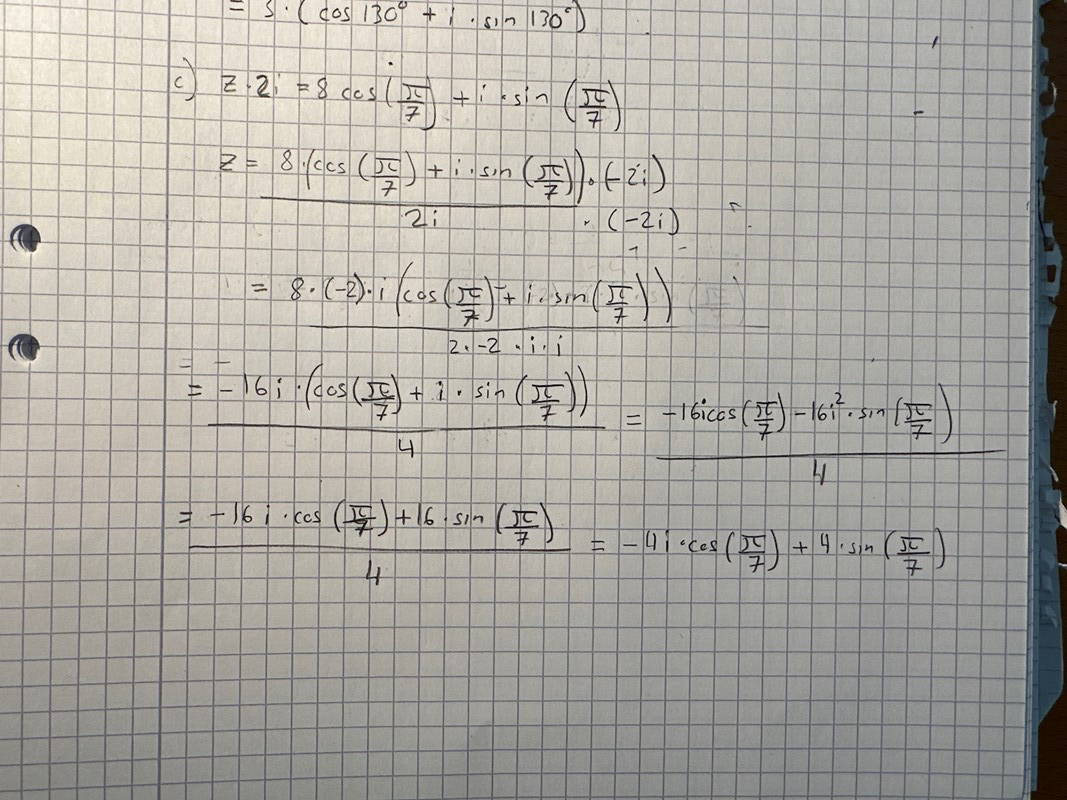 = 3 · (cos 130° + i · sin 130°)
c) z · 2i = 8 cos(π/7) + i · sin (π/7)
z = 8·(cos (π/7) + i · sin (π/7)) · (-2i)
2i · (-2i)
= 8 · (-2) · i (cos(π/7) + i · sin(π/7))
2 · -2 · i · i
= -16i · (cos(π/7) + i · sin (π/7)) / 4 = -16icos(π/7) -16i² · sin(π/7) / 4
= -16 i · cos (π/7) + 16 · sin (π/7) / 4 = -4i · cos(π/7) + 4 · sin (π/7)